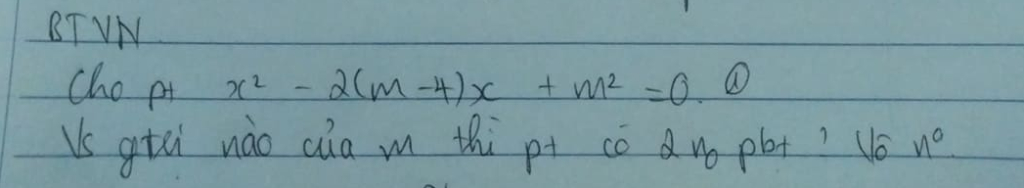 BTVN
Cho pt x² - 2(m-4)x + m² = 0. ①
Vs gtrị nào của m thì pt có 2 n₀ pbt ? Vô n⁰.